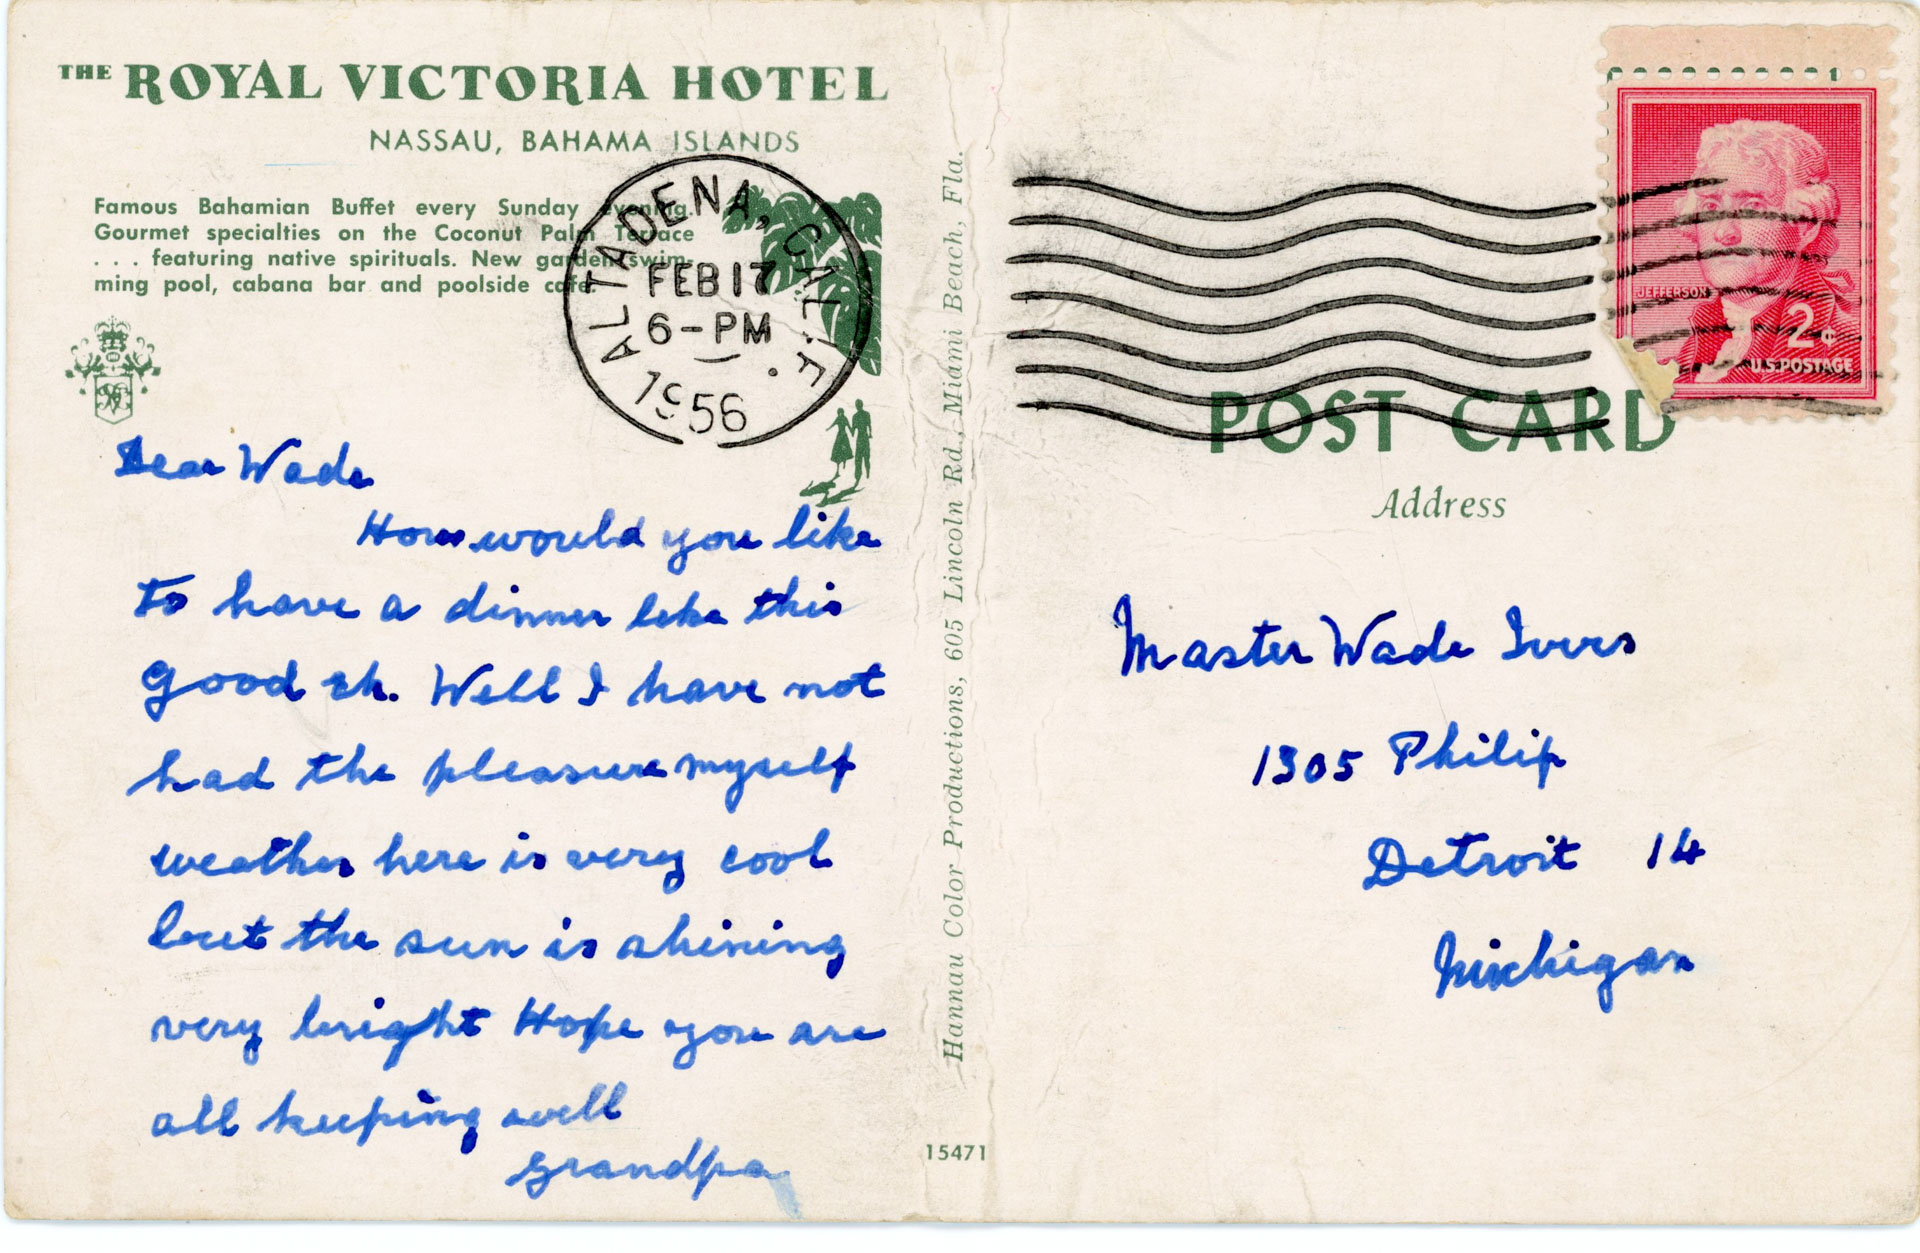 THE ROYAL VICTORIA HOTEL
NASSAU, BAHAMA ISLANDS
Famous Bahamian Buffet every Sunday evening.
Gourmet specialties on the Coconut Palm Terrace
. . . featuring native spirituals. New garden swim-
ming pool, cabana bar and poolside cafe.
ALTADENA, CALIF.
FEB 17
6-PM
1956
Dear Wade
How would you like
to have a dinner like this
Good eh. Well I have not
had the pleasure myself
weather here is very cool
but the sun is shining
very bright Hope you are
all keeping well
Grandpa
Hannau Color Productions, 605 Lincoln Rd., Miami Beach, Fla.
15471
1
JEFFERSON
2¢
U.S. POSTAGE
POST CARD
Address
Master Wade Ivers
1305 Philip
Detroit 14
Michigan